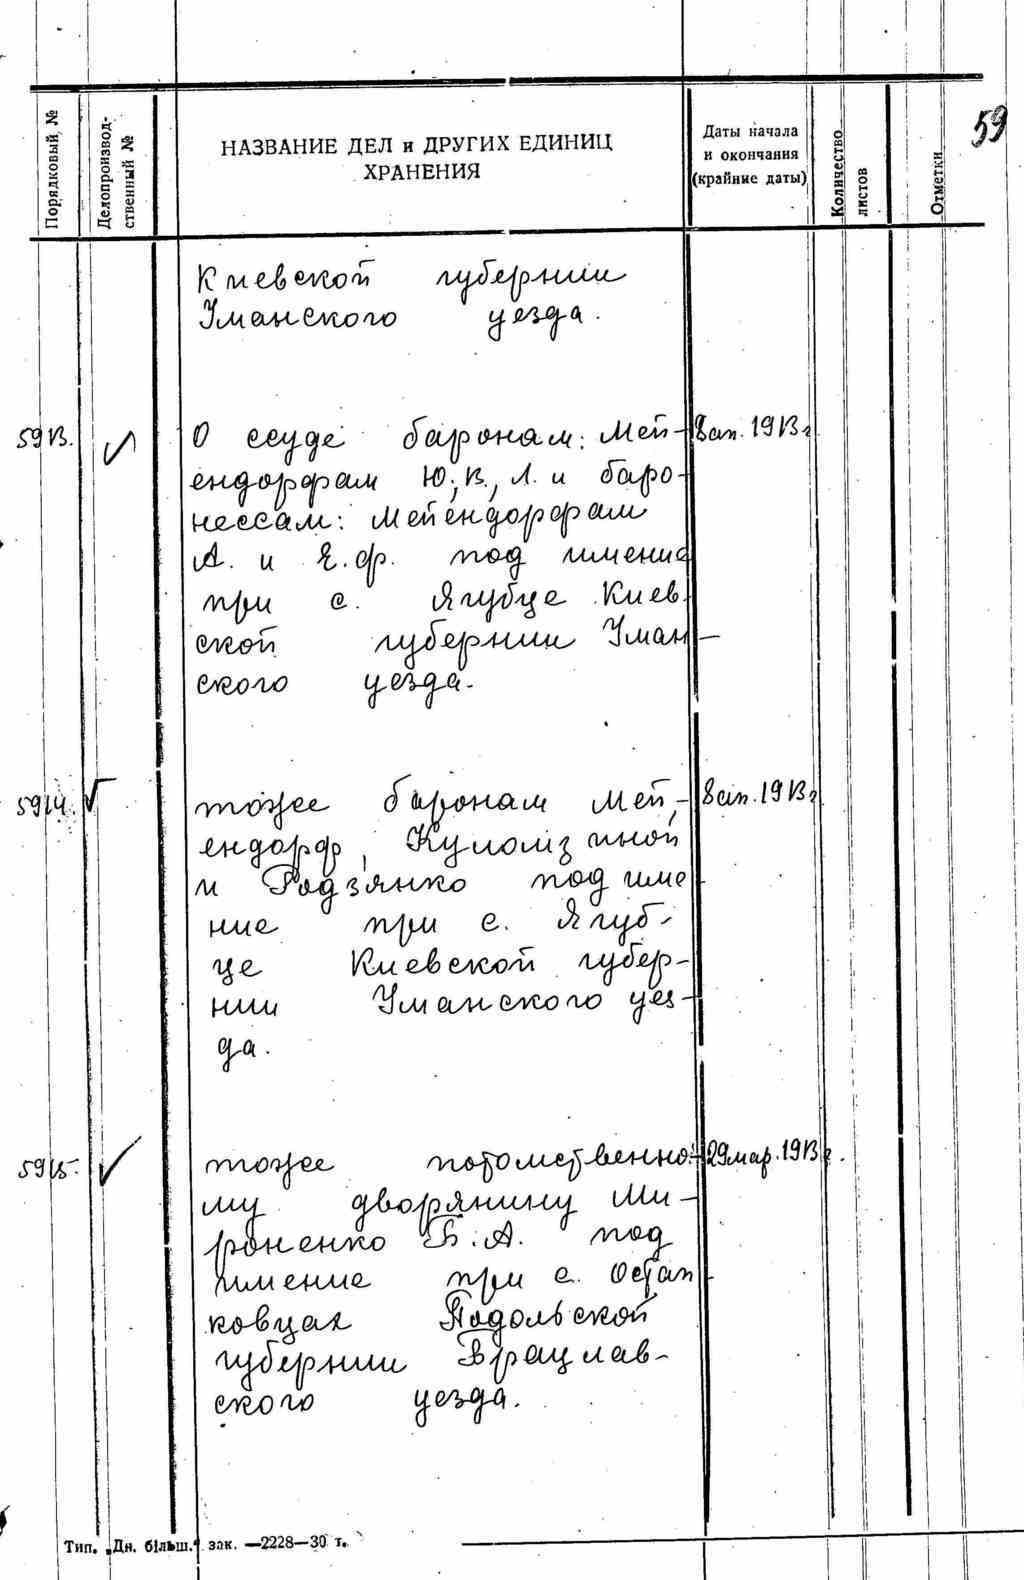 59
Порядковый №
Делопроизвод-
ственный №
НАЗВАНИЕ ДЕЛ и ДРУГИХ ЕДИНИЦ
ХРАНЕНИЯ
Даты начала
и окончания
(крайние даты)
Количество
листов
Отметки
Киевской губернии
Уманского уезда.
5913. О ссуде баронам: Мей- 8 ап. 1913 г.
ендорфам Ю., В., Л. и баро-
нессам: Мейендорфам
А. и Е.Ф. под имение
при с. Ягубце Киев
ской губернии Уман-
ского уезда.
5914. тоже баронам Мей- 8 ап. 1913 г
ендорф, Куломзиной
и Родзянко под име
ние при с. Ягуб-
це Киевской губер-
нии Уманского уез-
да.
5915. тоже потомственно- 29 мар. 1913 г.
му дворянину Ми-
роненко Б.А. под
имение при с. Остап
ковцах Подольской
губернии Брацлав-
ского уезда.
Тип. „Дн. більш." зак. —2228—30 т.